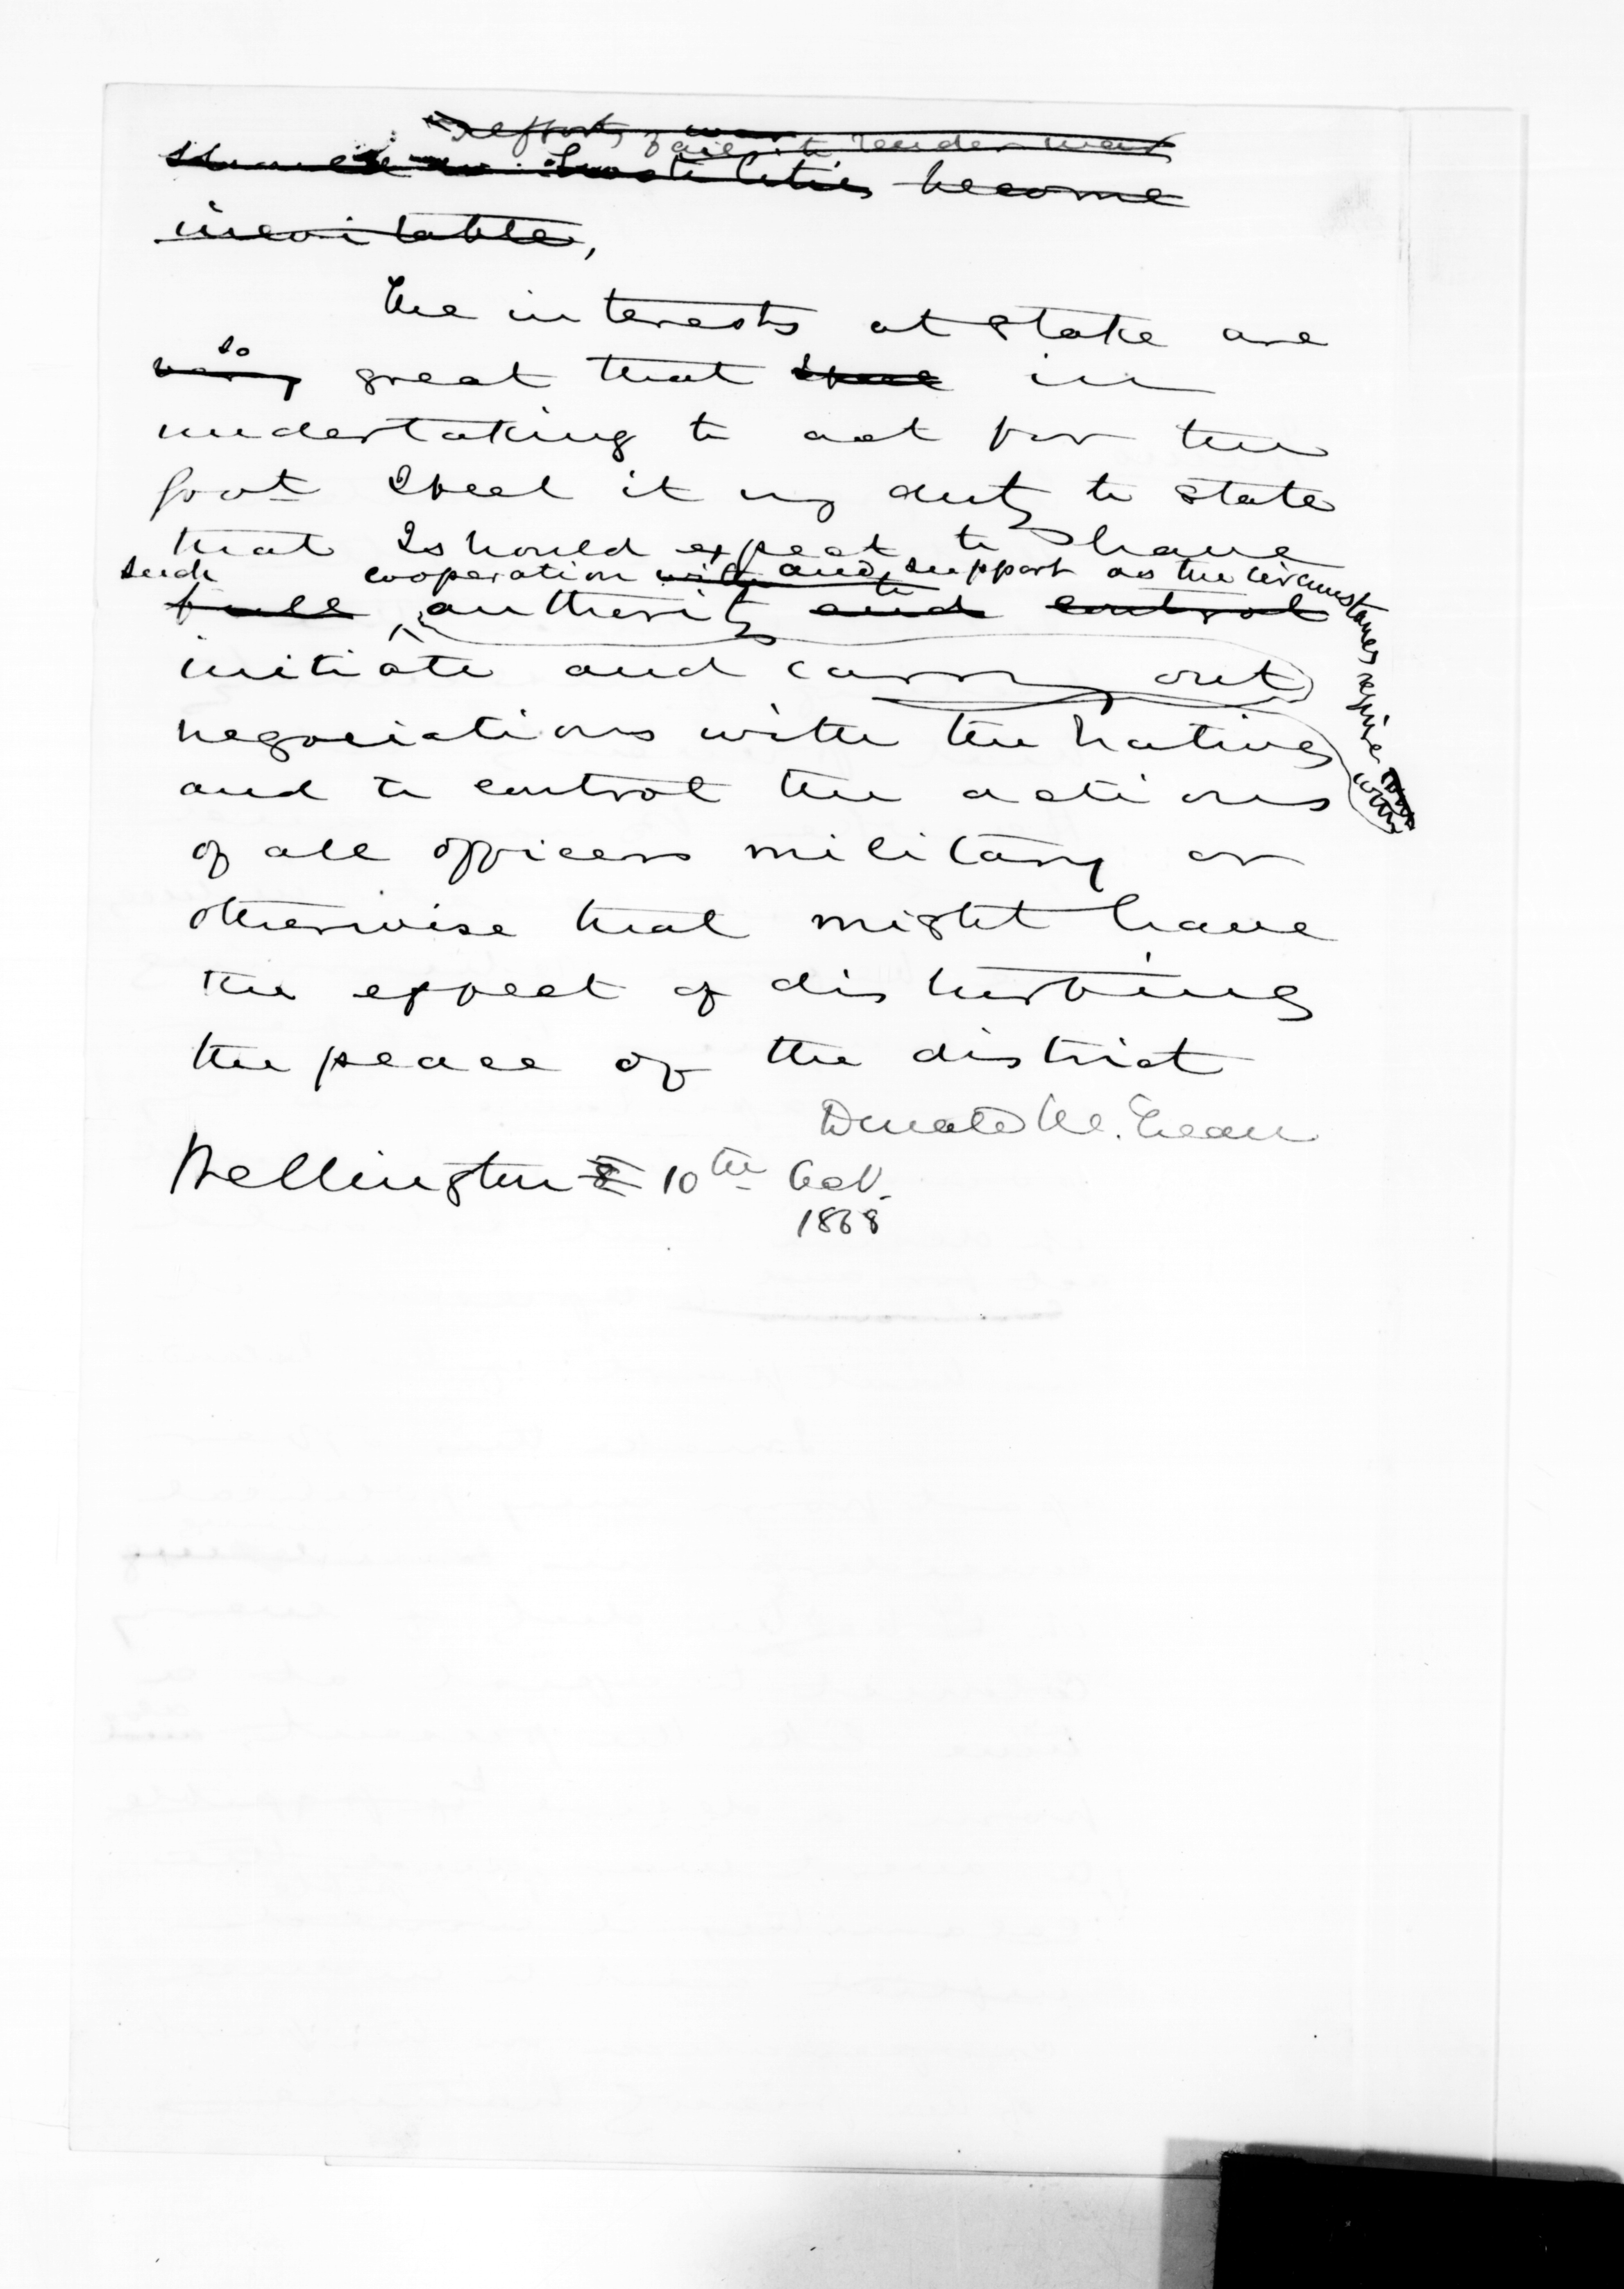 efforts, fail to render war
hostilities become
inevitable,
The interests at stake are
so
very great that I feel in
undertaking to act for the
Govt I feel it my duty to state
that I should expect to have
such cooperation with and support as the circumstances require
full authority and control
to
initiate and carry out
negociations with the natives
and to control the actions
of all officers military or
otherwise that might have
the effect of disturbing
the peace of the district
Donald McLean
Wellington 10th Oct.
1868